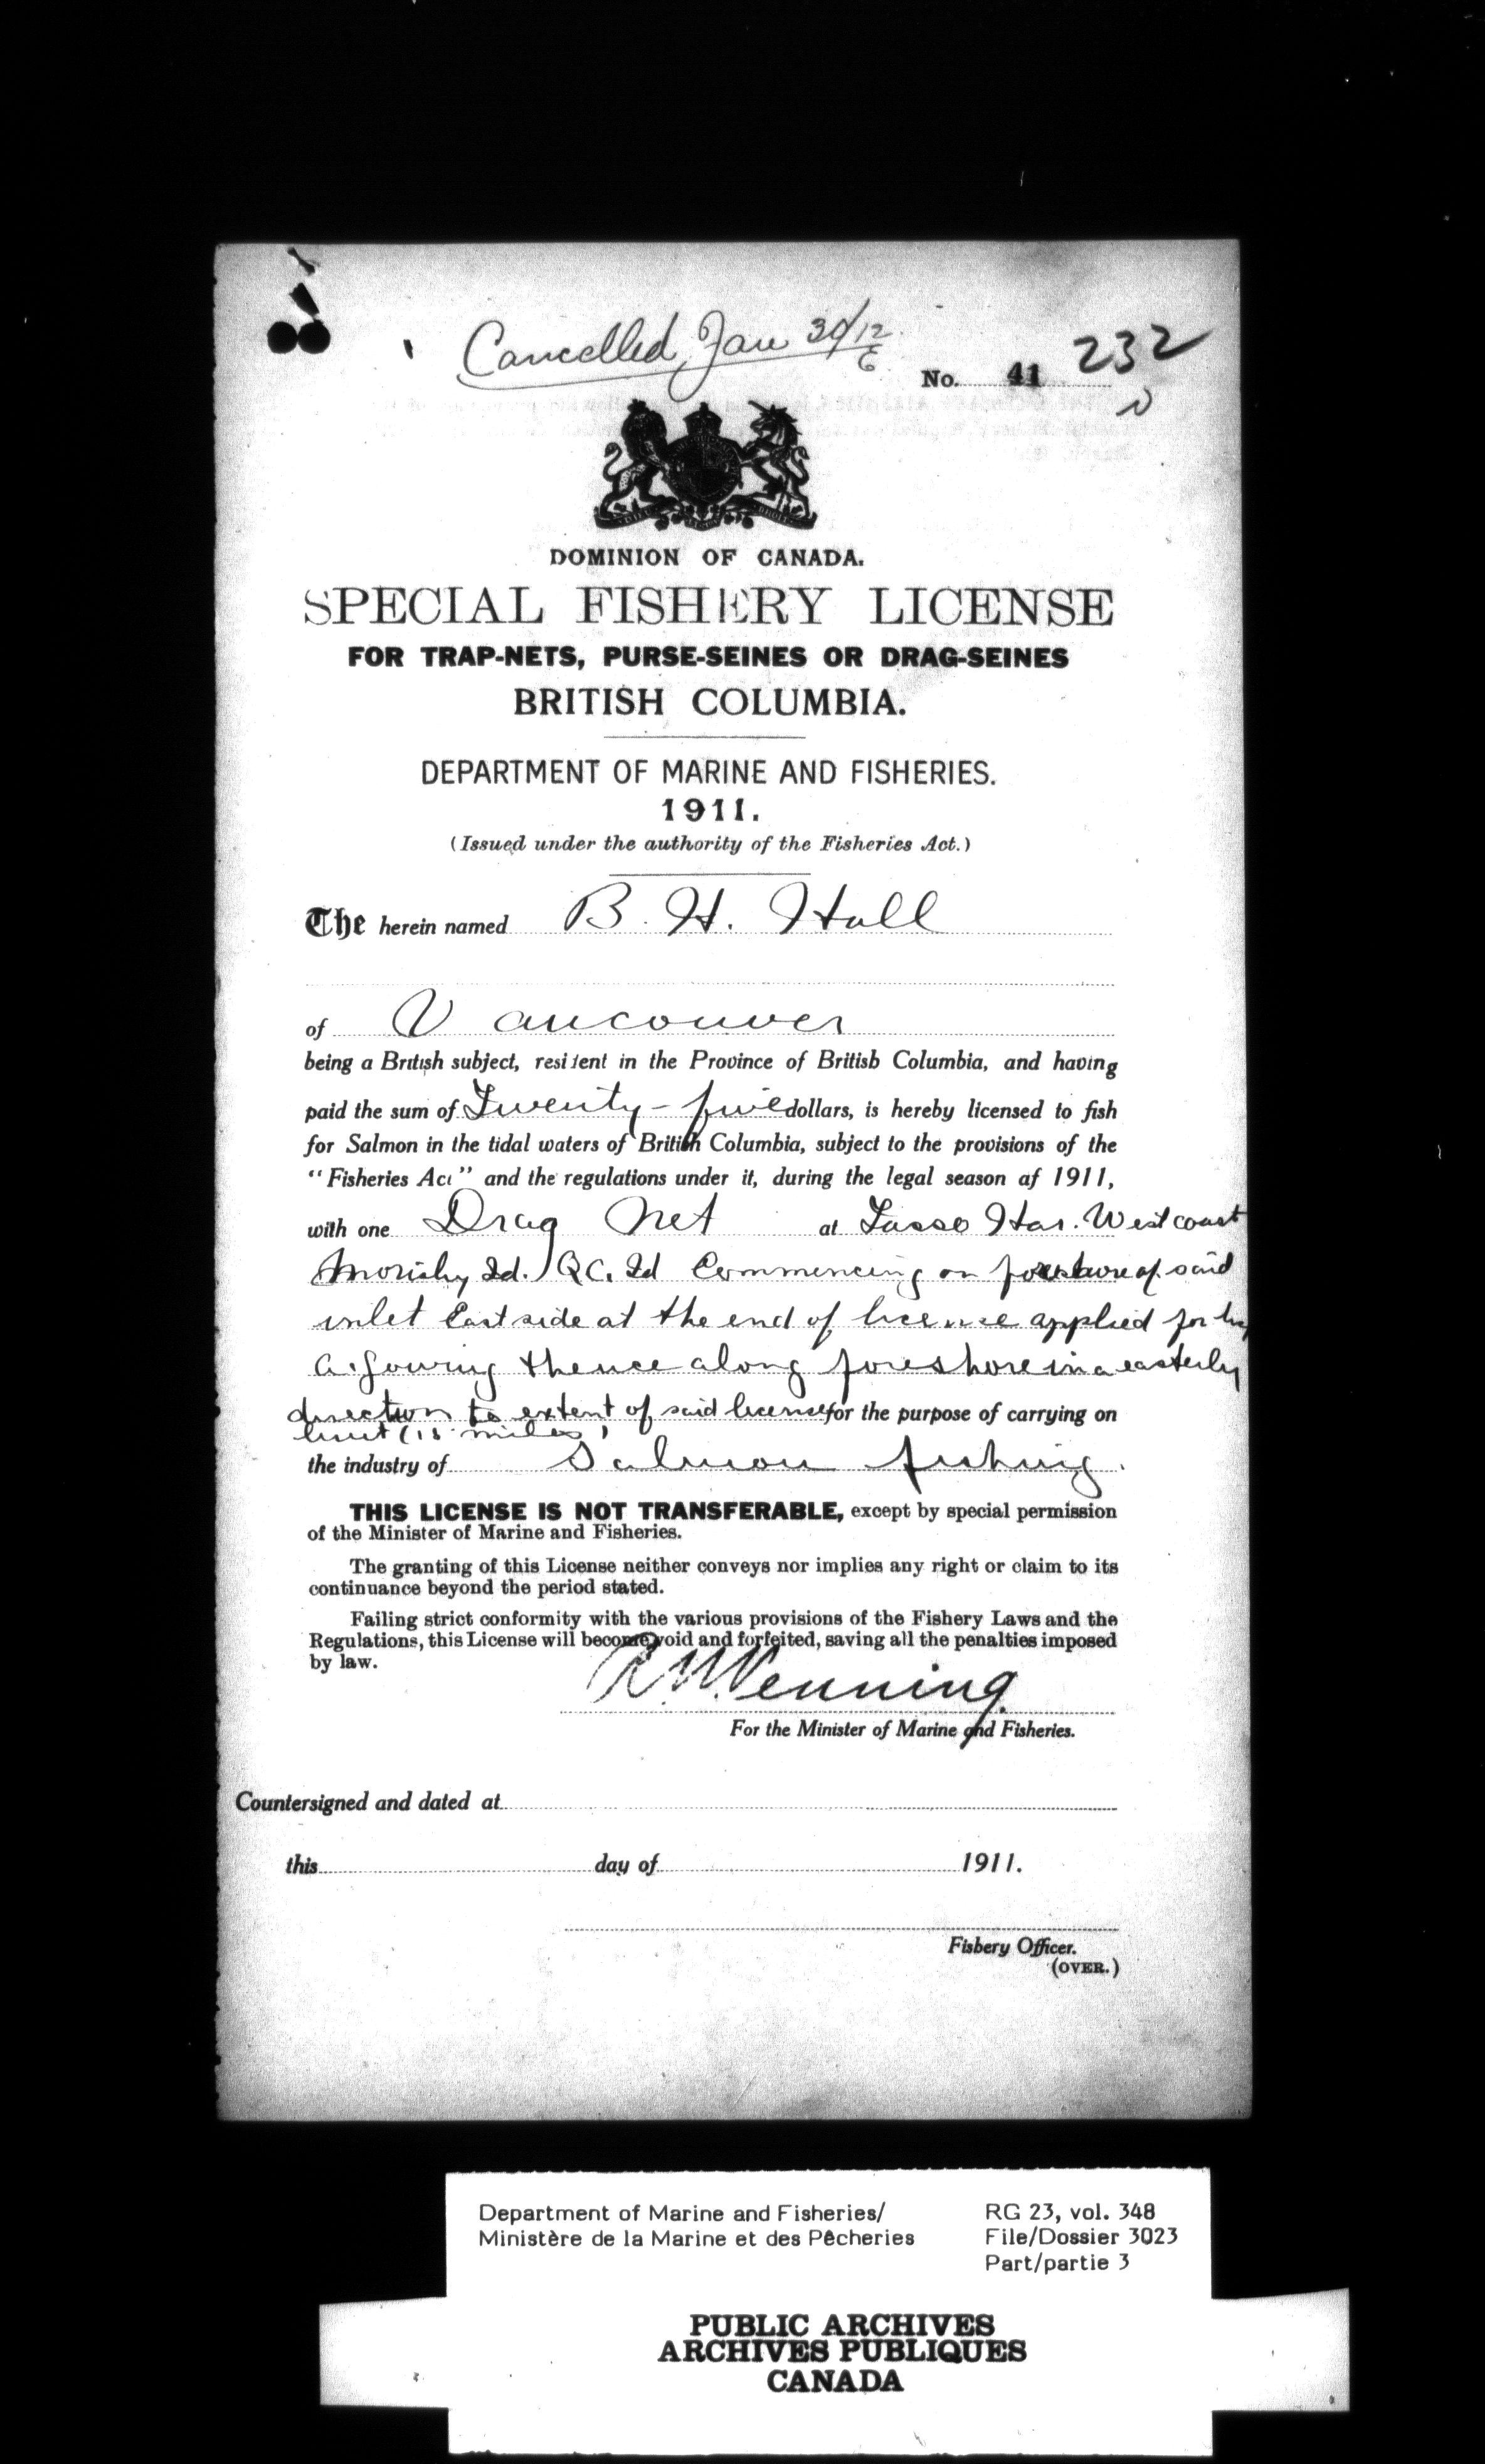 Cancelled, Jan 30/12
No. 41 232
DOMINION OF CANADA.
SPECIAL FISHERY LICENSE
FOR TRAP-NETS, PURSE-SEINES OR DRAG-SEINES
BRITISH COLUMBIA.
DEPARTMENT OF MARINE AND FISHERIES.
1911.
(Issued under the authority of the Fisheries Act.)
The herein named B. H. Hall
of Vancouver
being a British subject, resident in the Province of British Columbia, and having
paid the sum of Twenty-five dollars, is hereby licensed to fish
for Salmon in the tidal waters of British Columbia, subject to the provisions of the
"Fisheries Act" and the regulations under it, during the legal season af 1911,
with one Drag Net at Tasso Har. West coast
Morisby Id. Q.C. Id Commencing on foreshore of said
inlet East side at the end of license applied for by
thence along foreshore in a easterly
direction to extent of said license for the purpose of carrying on
limit miles)
the industry of Salmon fishing.
THIS LICENSE IS NOT TRANSFERABLE, except by special permission
of the Minister of Marine and Fisheries.
The granting of this License neither conveys nor implies any right or claim to its
continuance beyond the period stated.
Failing strict conformity with the various provisions of the Fishery Laws and the
Regulations, this License will become void and forfeited, saving all the penalties imposed
by law.
R. N. Venning.
For the Minister of Marine and Fisheries.
Countersigned and dated at
this day of 1911.
Fishery Officer.
(OVER.)
Department of Marine and Fisheries/
Ministère de la Marine et des Pêcheries
RG 23, vol. 348
File/Dossier 3023
Part/partie 3
PUBLIC ARCHIVES
ARCHIVES PUBLIQUES
CANADA